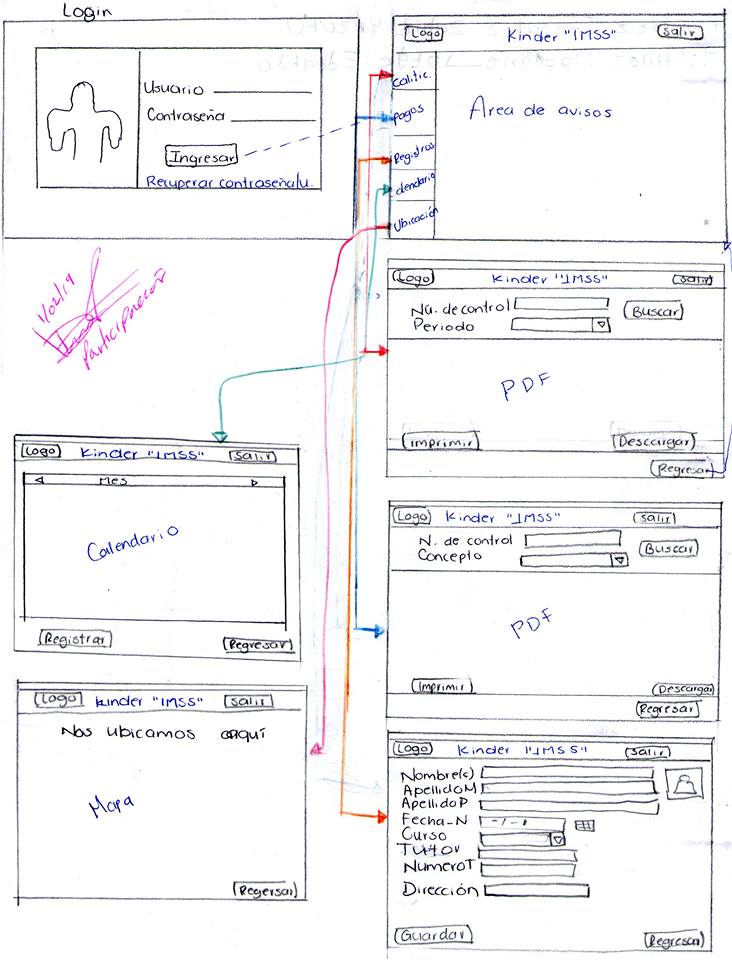 Login
Usuario
Contraseña
Ingresar
Recuperar contraseña/u.
Logo Kinder "IMSS" Salir
Calific.
Pagos
Registros
lendario
Ubicación
Area de avisos
1/02/19
Participación
Logo Kinder "IMSS" Salir
Nu. de control Buscar
Periodo
PDF
Imprimir Descargar
Regresar
Logo Kinder "IMSS" Salir
Mes
Calendario
Registrar Regresar
Logo Kinder "IMSS" Salir
N. de control
Concepto Buscar
PDF
Imprimir Descargar
Regresar
Logo Kinder "IMSS" Salir
Nos ubicamos aquí
Mapa
Regersar
Logo Kinder "IMSS" Salir
Nombre(s)
ApellidoM
ApellidoP
Fecha-N -/-
Curso
Tutor
NumeroT
Dirección
Guardar Regresar